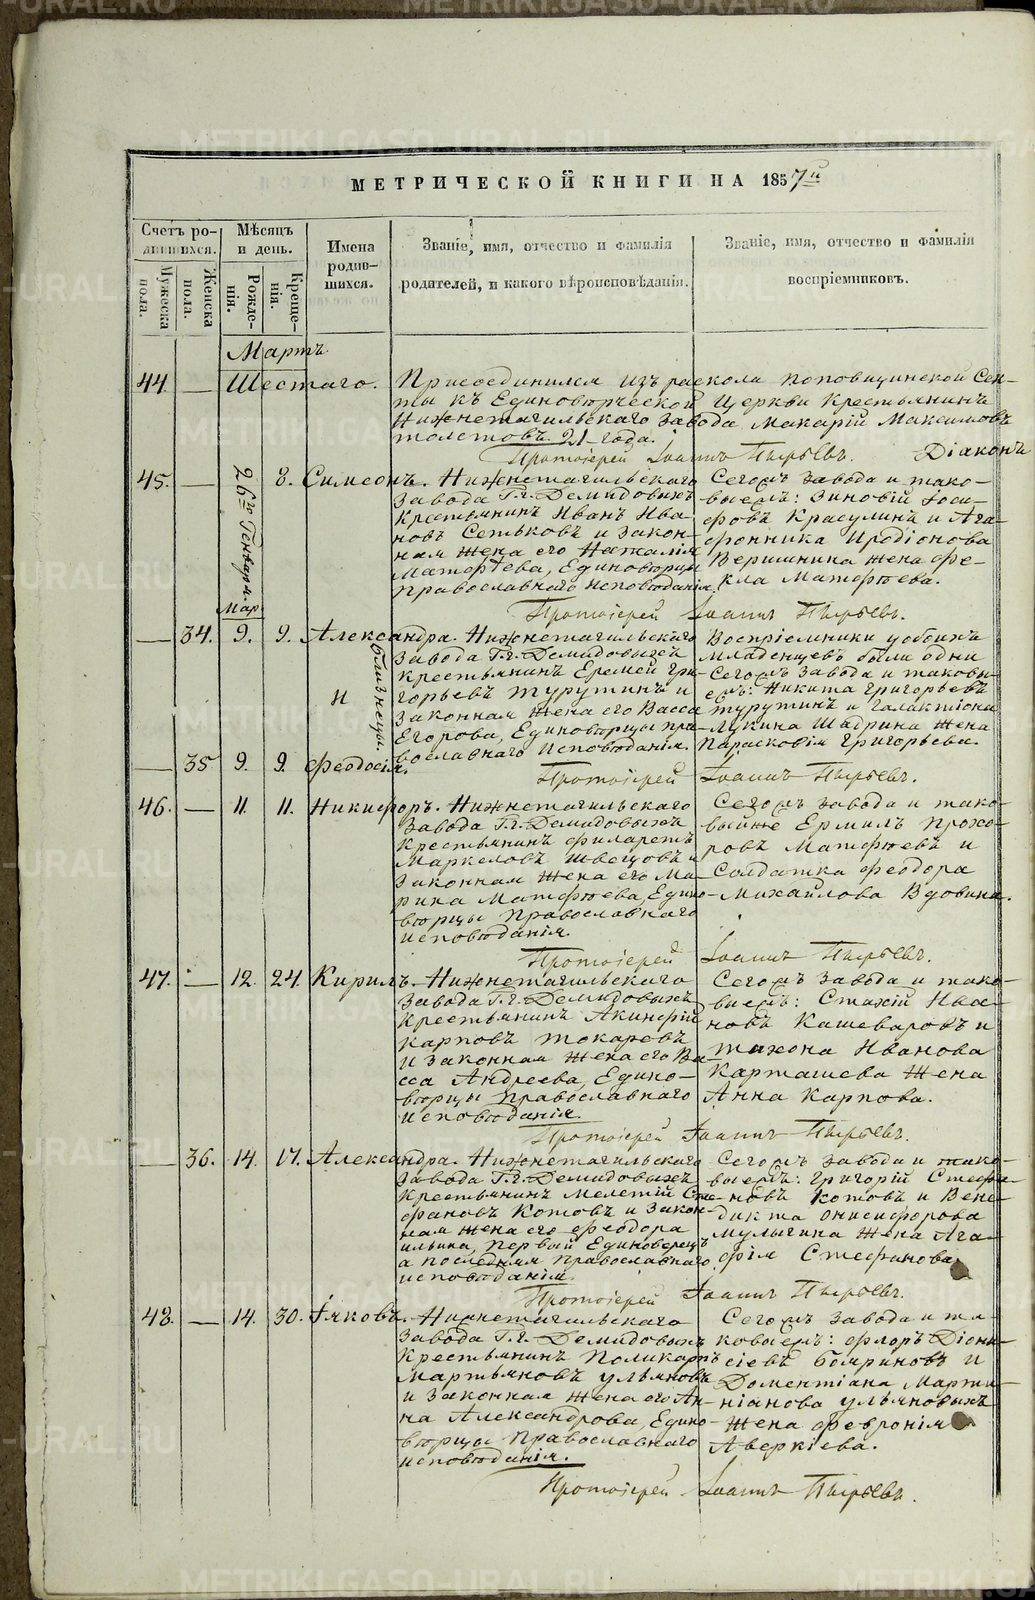 МЕТРИЧЕСКОЙ КНИГИ НА 1857й
Счетъ родившихся.
Мѣсяцъ и день.
Имена родившихся.
Званіе, имя, отчество и фамилія родителей, и какого вѣроисповѣданія.
Званіе, имя, отчество и фамилія воспріемниковъ.
Мужеска пола.
Женска пола.
Рожденія.
Крещенія.
Мартъ.
44. — Шестаго. Присоединился изъ раскола поповщинской Сек-
ты къ Единовѣрческой Церкви Крестьянинъ
Нижнетагильскаго Завода Макарій Максимовъ
толстовъ. 21 года.
Протоіерей Іоаннъ Пырьевъ. Діаконъ
45. — 26го Генваря. 8. Симеонъ.
Нижнетагильскаго
Завода Г.г. Демидовыхъ
Крестьянинъ Иванъ Ива-
новъ Сетьковъ и закон-
ная жена его Наталія
Матфѣева, Единовѣрцы
православнаго исповѣданія.
Сегожъ завода и тако-
выежъ: Зиновій Іоси-
фовъ Красулинъ и Ага-
фонника Иродіонова
Вершинина жена Фе-
кла Матфѣева.
Протоіерей Іоаннъ Пырьевъ.
Мар
— 34. 9. 9. Александра.
близнецы.
и
— 35 9. 9. Феодосія.
Нижнетагильскаго
Завода Г.г. Демидовыхъ
крестьянинъ Еремей Гри-
горьевъ Турутинъ и
законная жена его Васса
Егорова, Единовѣрцы пра-
вославнаго исповѣданія.
Воспріемники у обоихъ
младенцевъ были одни
Сегожъ завода и таковы-
ежъ: Никита Григорьевъ
Турутинъ и Галактіона
Лукина Шадрина жена
Парасковія Григорьева.
Протоіерей Іоаннъ Пырьевъ.
46. — 11. 11. Никифоръ.
Нижнетагильскаго
Завода Г.г. Демидовыхъ
крестьянинъ Филаретъ
Маркеловъ Швецовъ и
законная жена его Ма-
рина Матфѣева, Едино-
вѣрцы Православнаго
исповѣданія.
Сегожъ завода и тако-
выйже Ермилъ Прохо-
ровъ Матфѣевъ и
Солдатка Феодора
Михайлова Вдовина.
Протоіерей Іоаннъ Пырьевъ.
47. — 12. 24. Кирилъ.
Нижнетагильскаго
Завода Г.г. Демидовыхъ
Крестьянинъ Акинфій
Карповъ Токаревъ
и законная жена его Ва-
сса Андреева, Едино-
вѣрцы Православнаго
исповѣданія.
Сегожъ завода и тако-
выежъ: Стахій Ива-
новъ Кашеваровъ и
Тихона Иванова
Карташева жена
Анна Карпова.
Протоіерей Іоаннъ Пырьевъ.
— 36. 14. 17. Александра.
Нижнетагильскаго
Завода Г.г. Демидовыхъ
Крестьянинъ Мелетій Сте-
фановъ Котовъ и закон-
ная жена его Феодора
Ильина, первый Единоверецъ
а последняя Православнаго
исповѣданія.
Сегожъ завода и тако-
выежъ: Григорій Стефа-
новъ Котовъ и Вене-
дикта Онисифорова
Мулыгина жена Ага-
фія Стефанова.
Протоіерей Іоаннъ Пырьевъ.
48. — 14. 30. Іяковъ.
Нижнетагильскаго
Завода Г.г. Демидовыхъ
Крестьянинъ Поликарпъ
Мартьяновъ Ульяновъ
и законная жена его Ан-
на Александрова, Едино-
вѣрцы Православнаго
исповѣданія.
Сегожъ завода и та-
ковыежъ: Флоръ Діони-
сіевъ Бояриновъ и
Доментіана Марти-
ніанова Ульяновыхъ
жена Февронія
Аверкіева.
Протоіерей Іоаннъ Пырьевъ.
METRIKI.GASO-URAL.RU